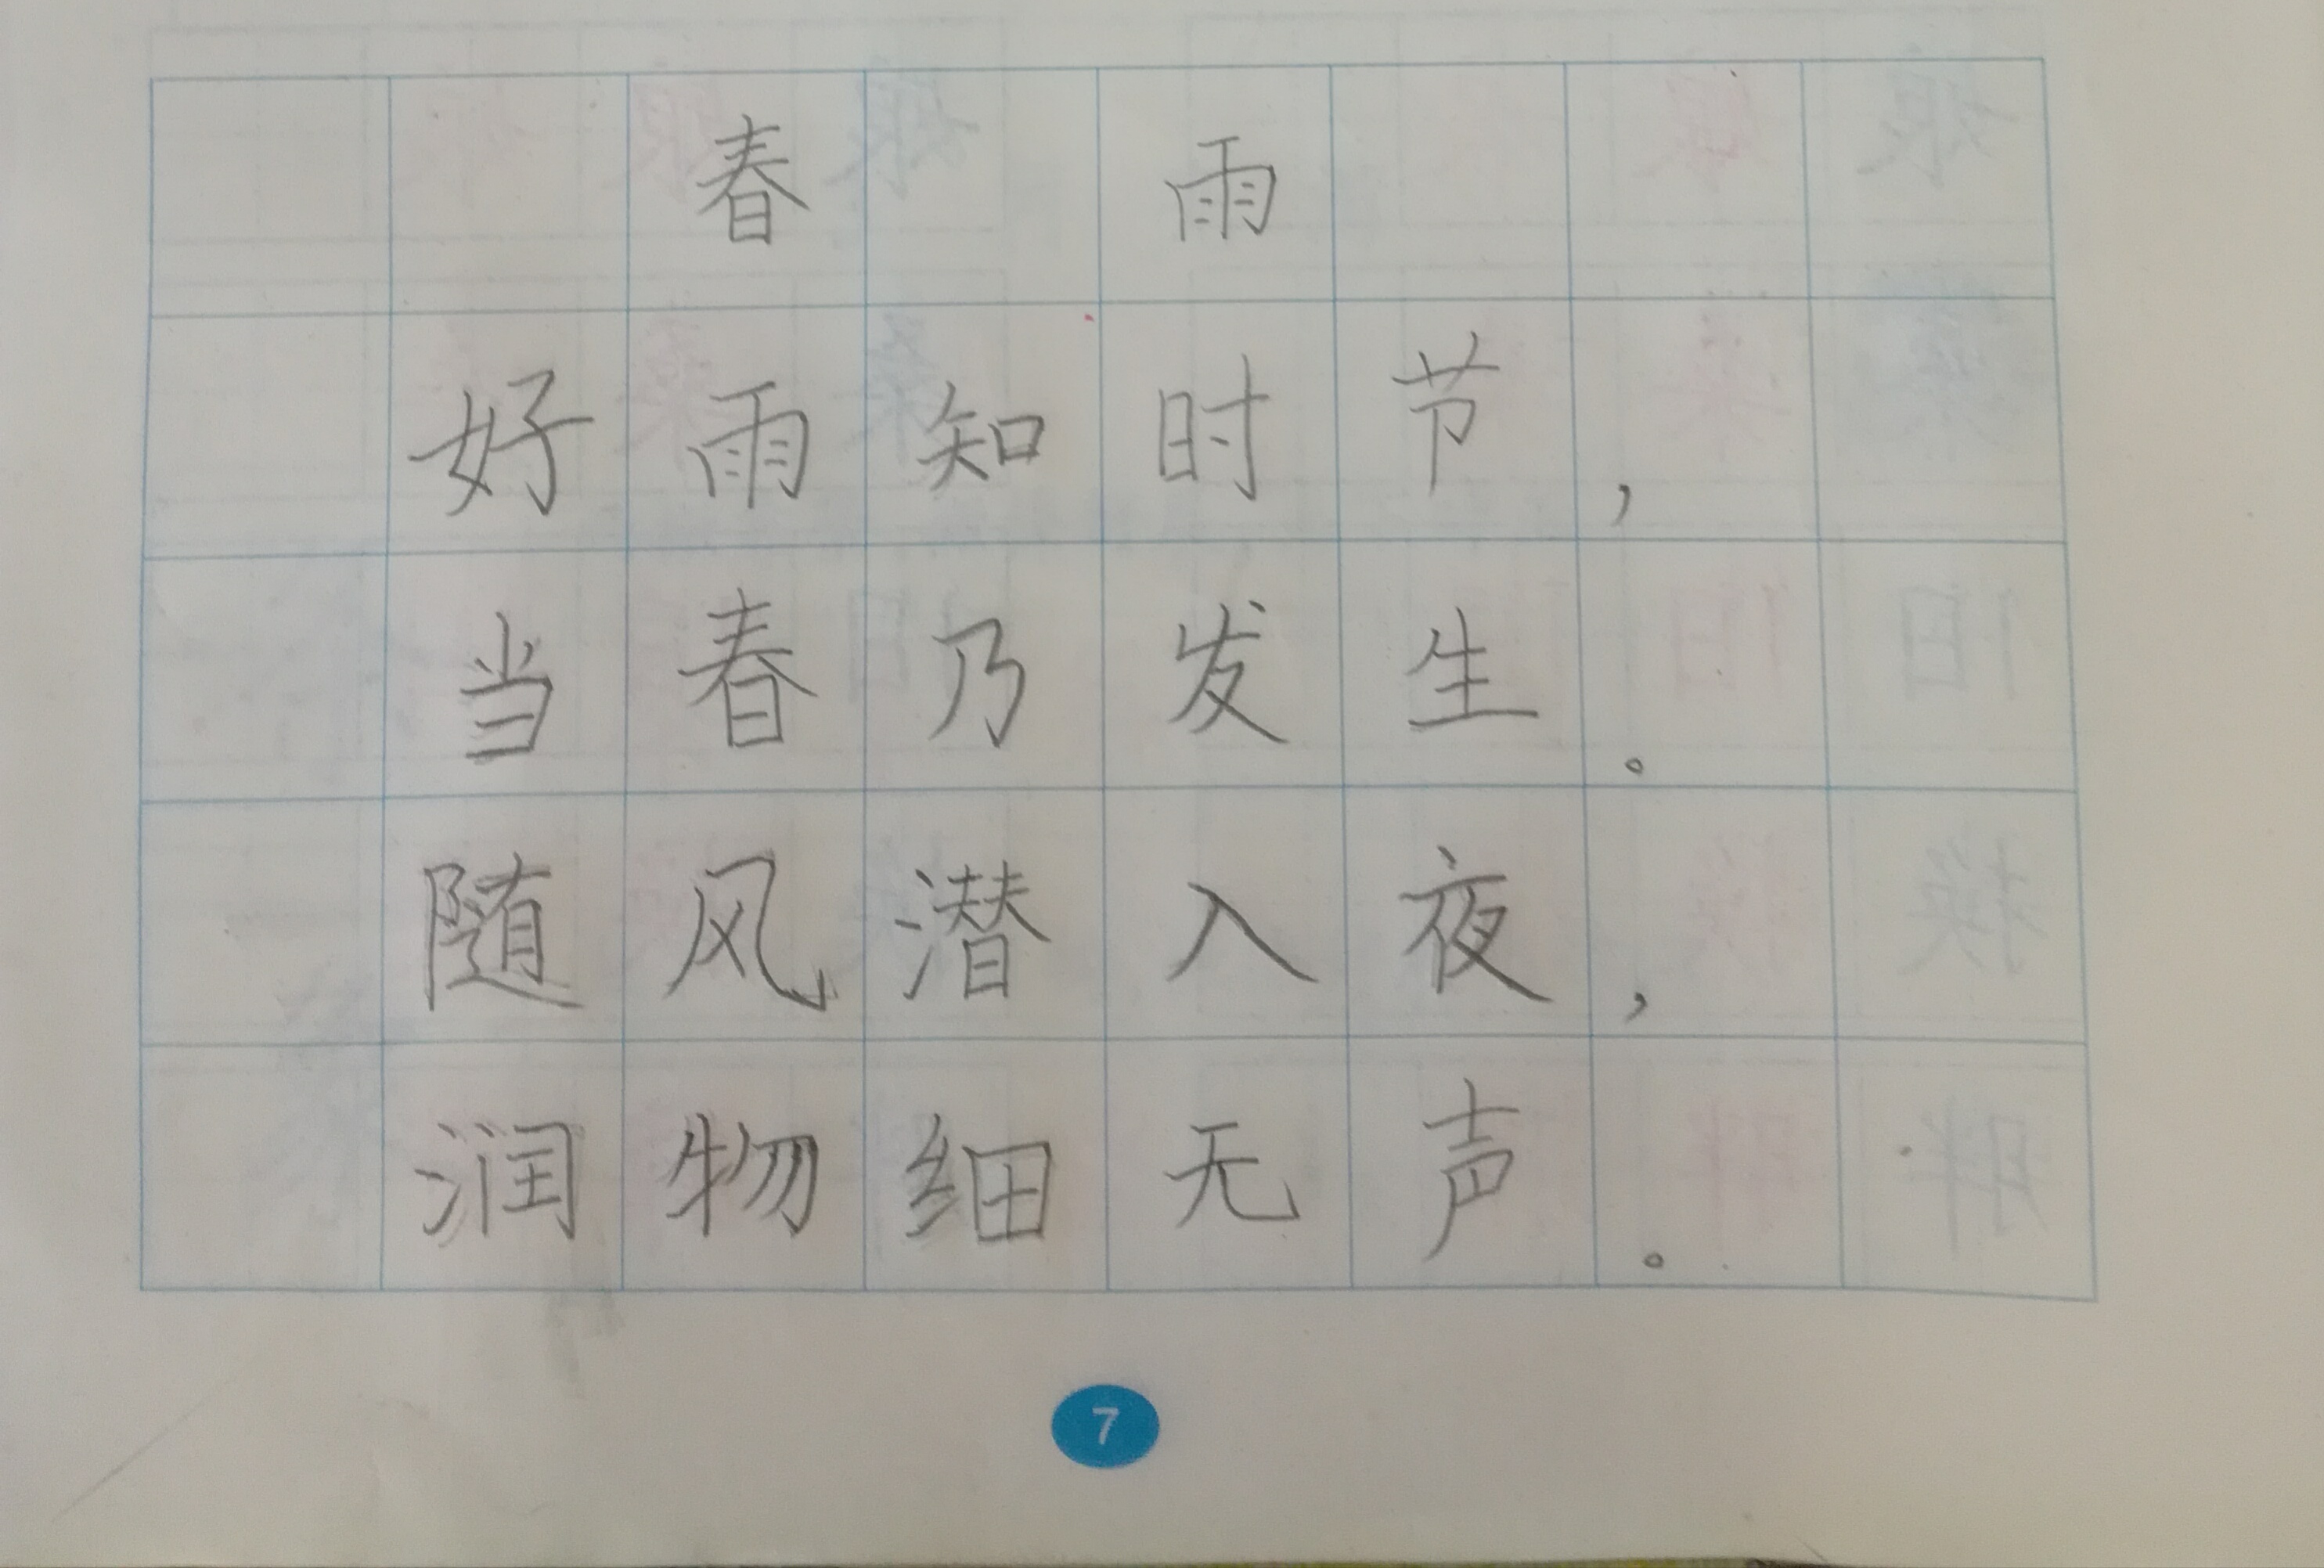 春雨
好雨知时节，
当春乃发生。
随风潜入夜，
润物细无声。
7